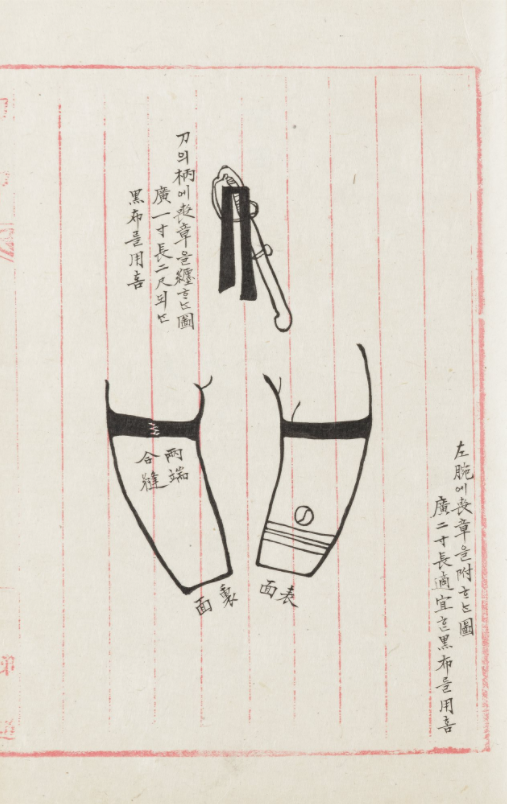 左腕에喪章을附ᄒᆞᄂᆞᆫ圖
廣二寸長適宜ᄒᆞᆫ黑布를用홈
刀의柄에喪章을纏ᄒᆞᄂᆞᆫ圖
廣一寸長二尺되ᄂᆞᆫ
黑布를用홈
兩端
合縫
表面
裏面